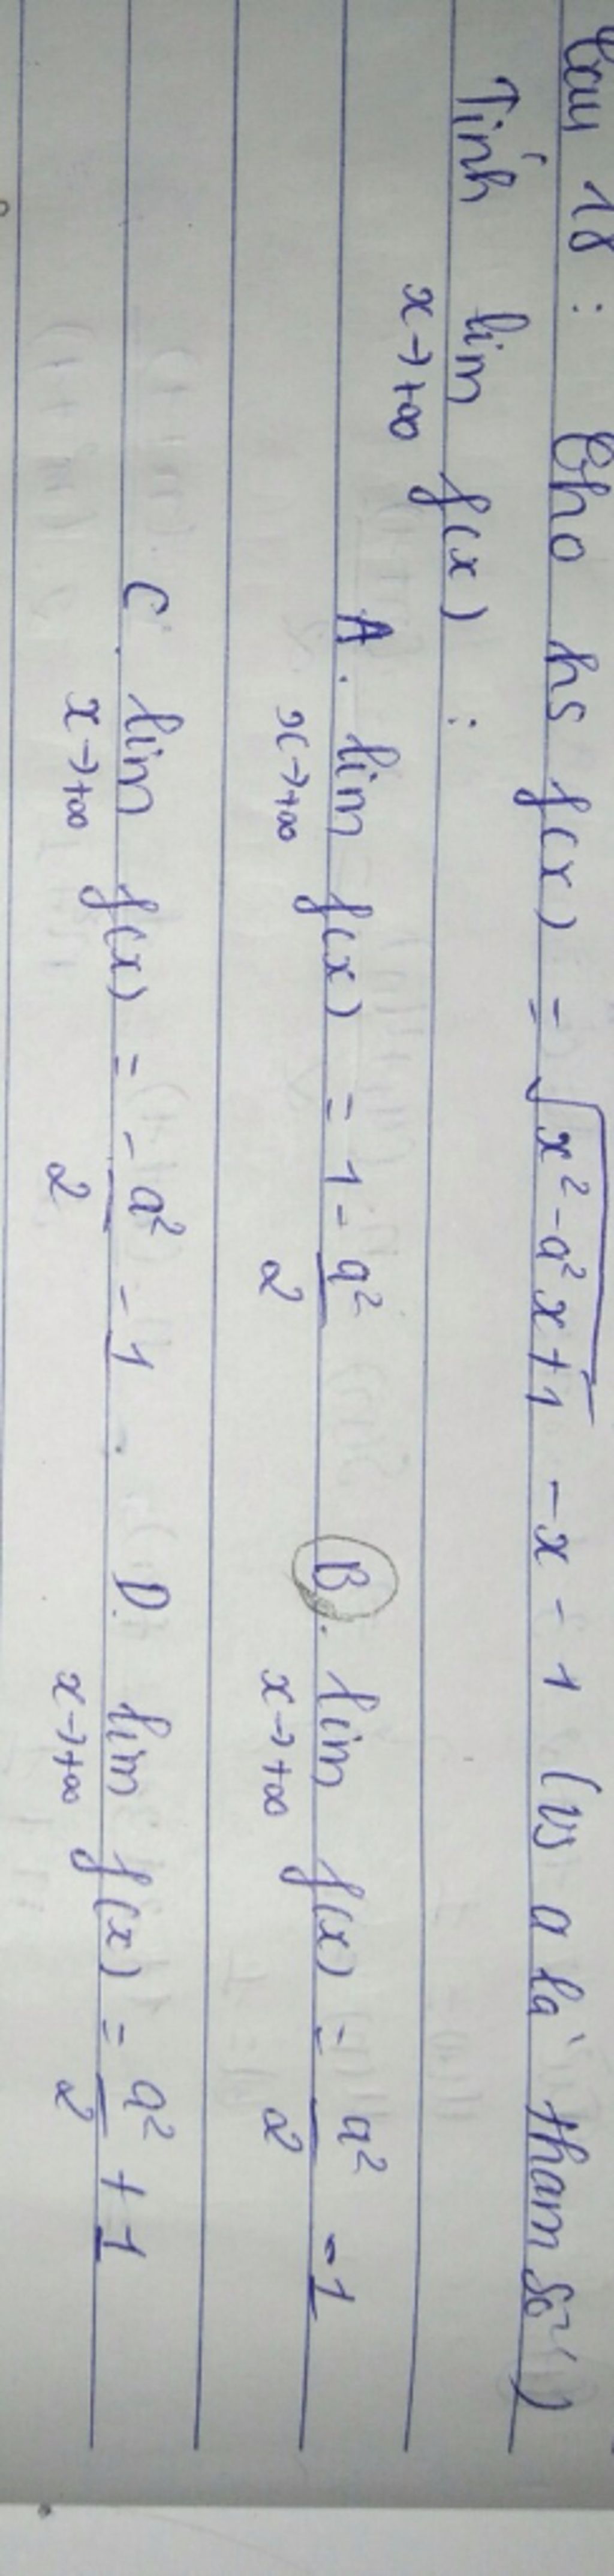 Câu 18 : Cho hs f(x) = √(x² - a²x + 1) - x - 1 (vs a là tham số)
Tính lim x→+∞ f(x) :
A. lim x→+∞ f(x) = 1 - a²/2 B. lim x→+∞ f(x) = a²/2 - 1
C. lim x→+∞ f(x) = -a²/2 - 1 . D. lim x→+∞ f(x) = a²/2 + 1